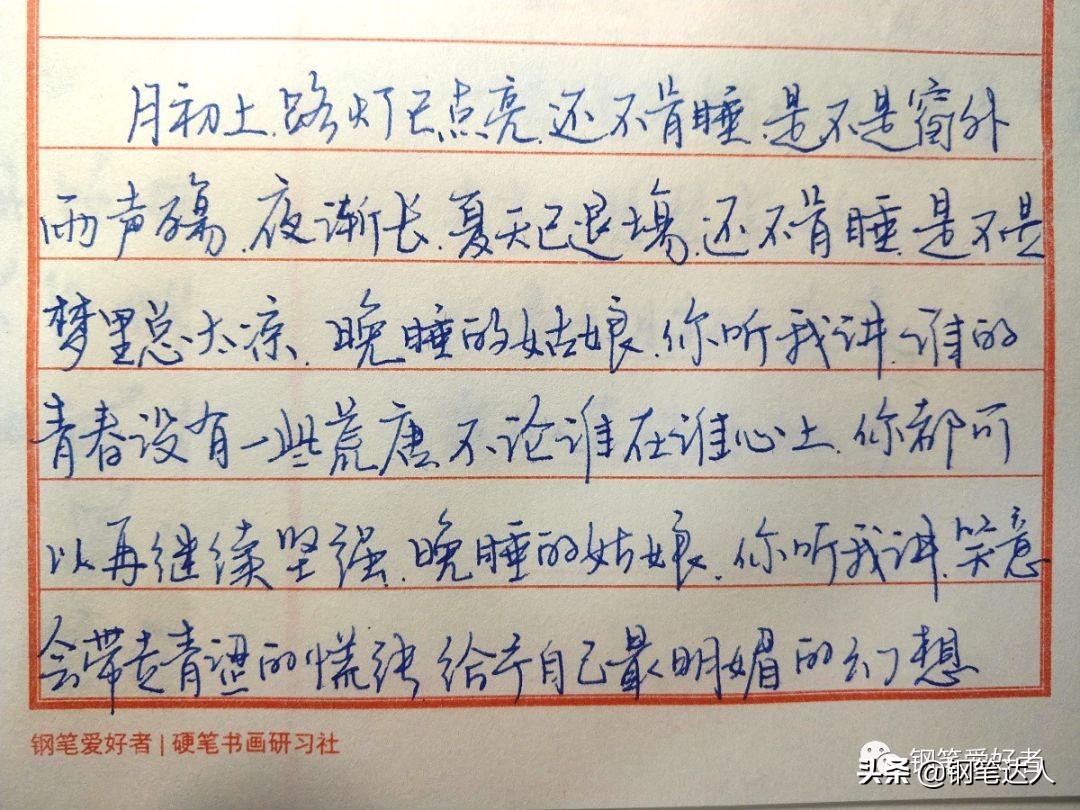 月初上.路灯已点亮.还不肯睡.是不是窗外
雨声殇.夜渐长.夏天已退場.还不肯睡.是不是
梦里总太凉.晚睡的姑娘.你听我讲.谁的
青春没有一些荒唐.不论谁在谁心上.你都可
以再继续坚强.晚睡的姑娘.你听我讲.笑意
会带走青涩的慌张.给予自己最明媚的幻想
钢笔爱好者 | 硬笔书画研习社
钢笔爱好者
头条 @钢笔达人